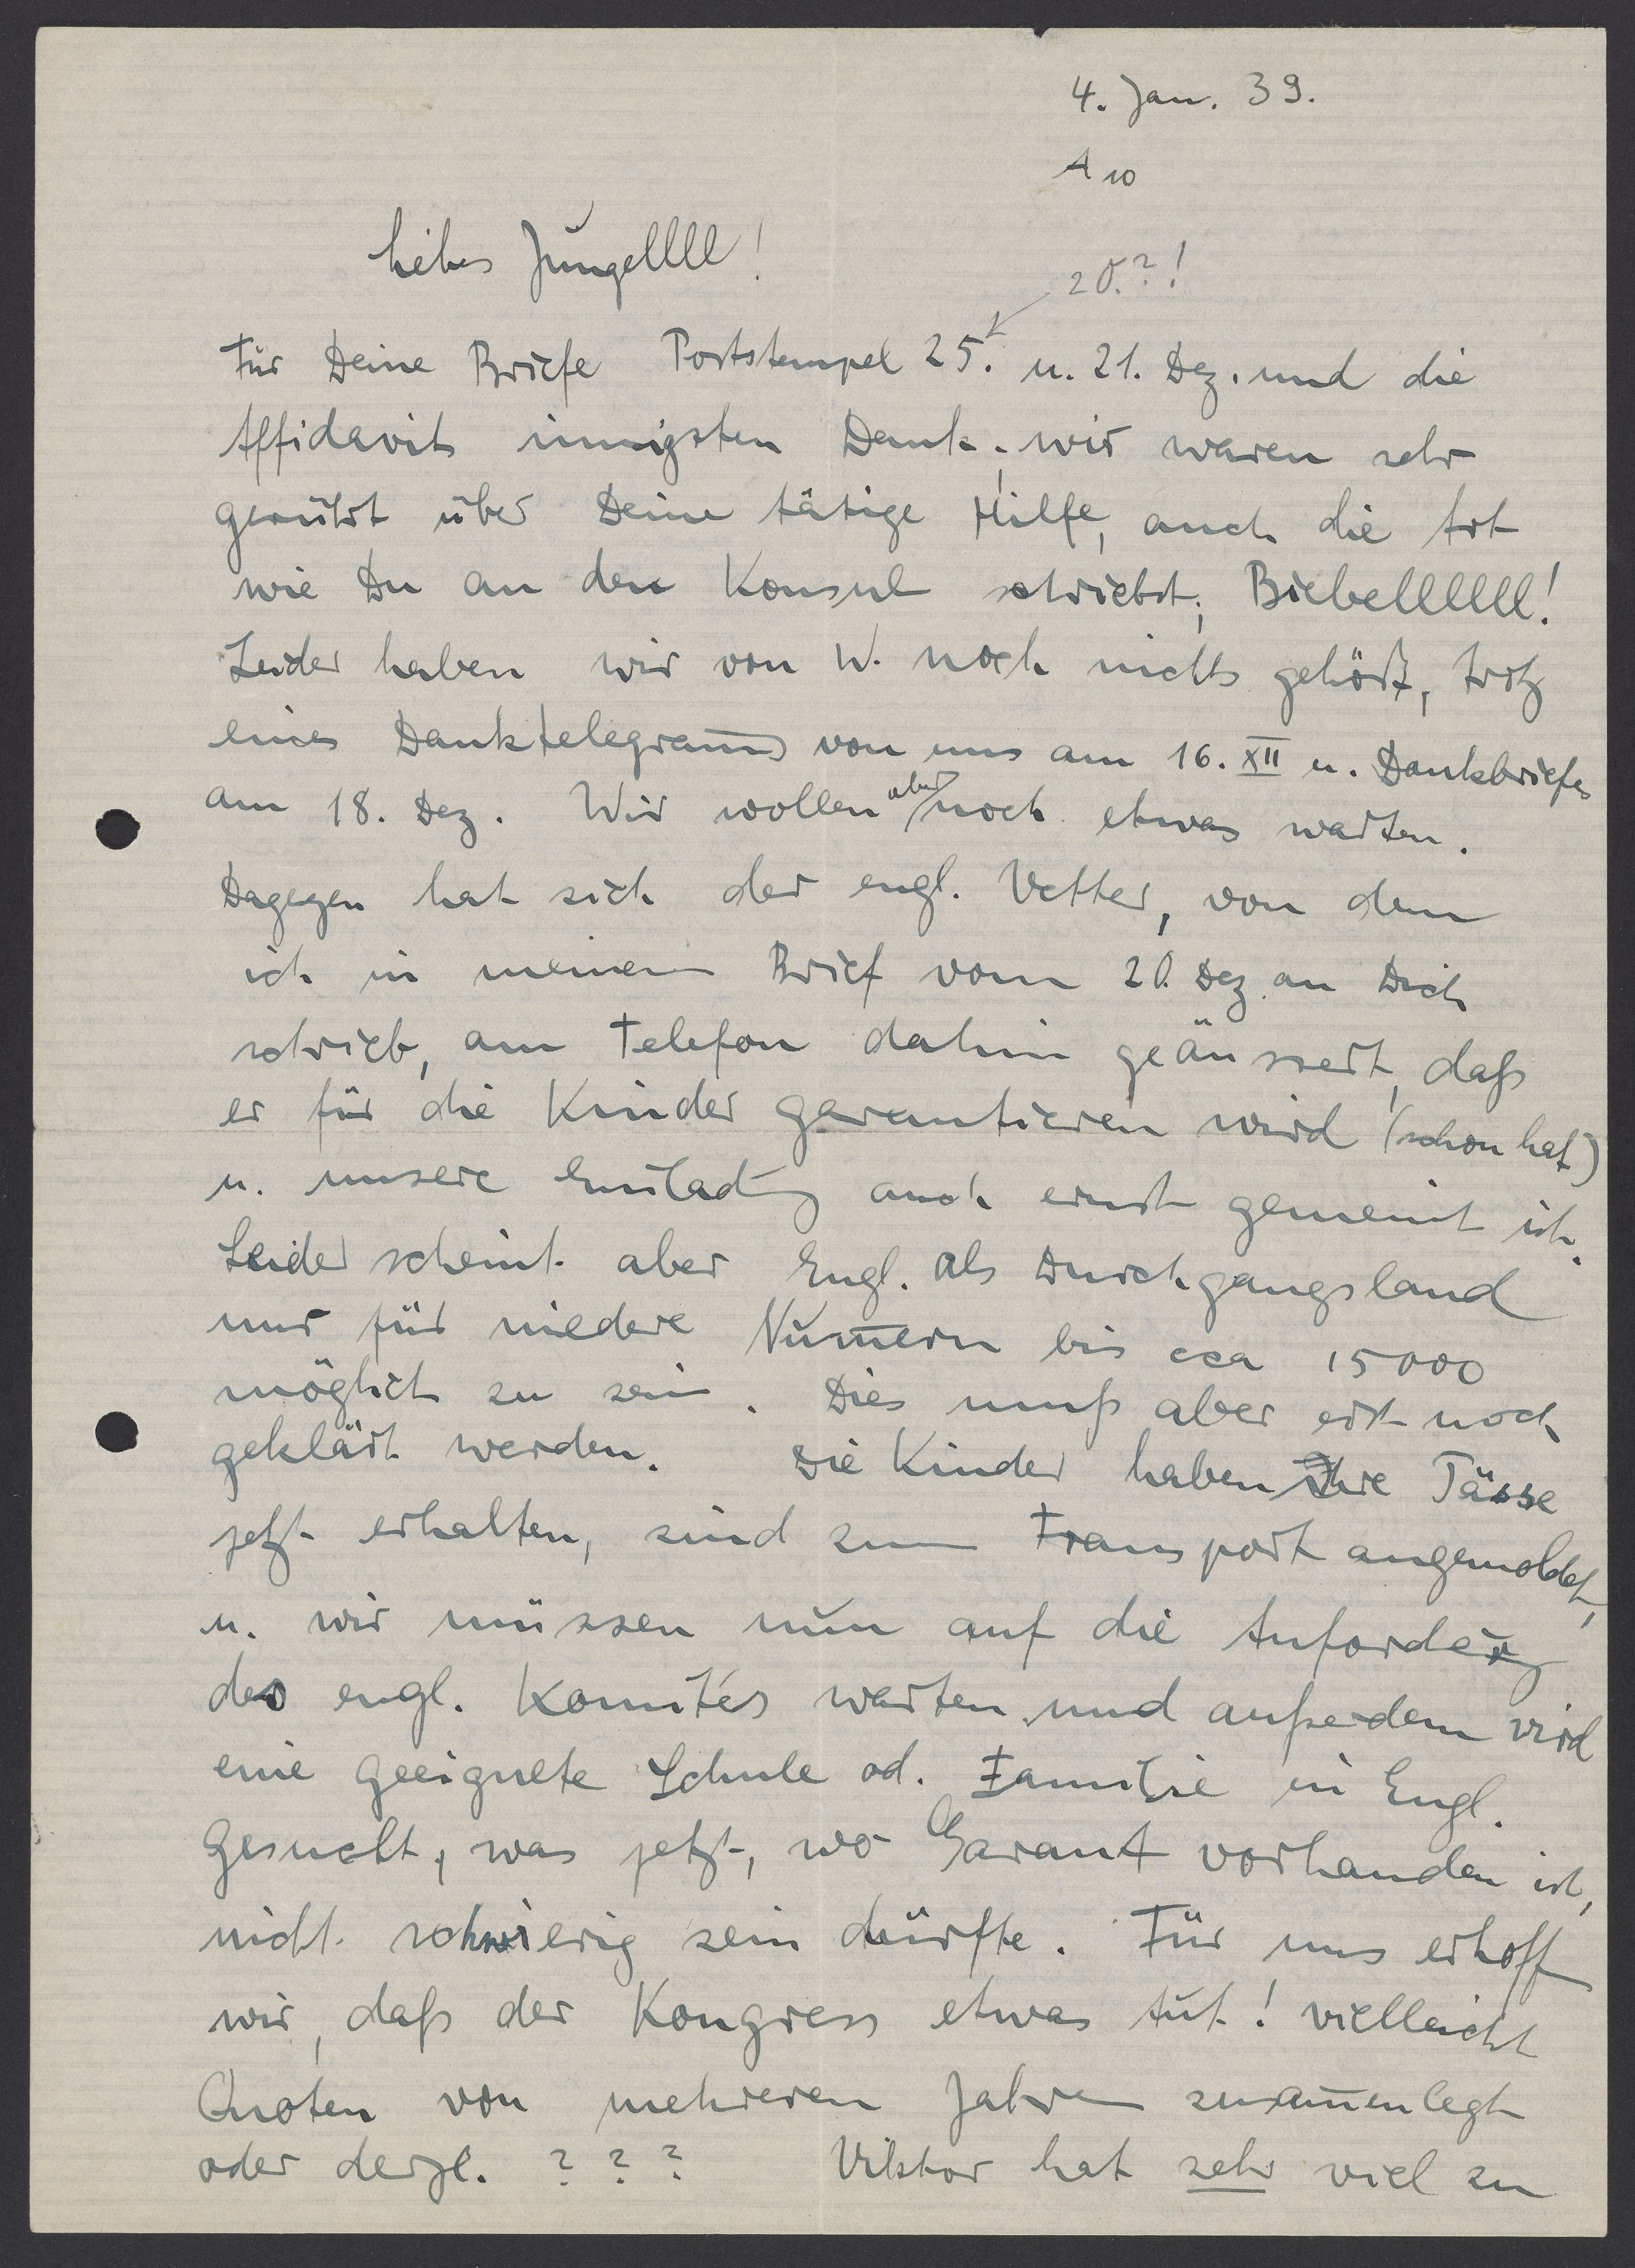 4. Jan. 39.
A 10
Liebes Jungellll!
20.?!
Für Deine Briefe Poststempel 25. u. 21. Dez. und die
Affidavits innigsten Dank; wir waren sehr
gerührt über Deine tätige Hilfe, auch die Art
wie Du an den Konsul schriebst, Biebellllll!
Leider haben wir von W. noch nichts gehört, trotz
eines Danktelegram̅s von uns am 16. XII u. Dankbriefes
am 18. Dez. Wir wollen aber noch etwas warten.
Dagegen hat sich der engl. Vetter, von dem
ich in meinem Brief vom 20. Dez. an Dich
schrieb, am Telefon dahin geäussert, daß
er für die Kinder garantieren wird (schon hat)
u. unsere Einladg auch ernst gemeint ist.
Leider scheint aber Engl. als Durchgangsland
nur für niedere Num̅ern bis cca 15000
möglich zu sein. Dies muß aber erst noch
geklärt werden. Die Kinder haben ihre Pässe
jetzt erhalten, sind zum Transport angemeldet,
u. wir müssen nun auf die Anforderg
des engl. Komités warten und außerdem wird
eine geeignete Schule od. Familie in Engl.
gesucht, was jetzt, wo Garant vorhanden ist,
nicht schwierig sein dürfte. Für uns erhoffen
wir, daß der Kongress etwas tut! vielleicht
Quoten von mehreren Jahren zusam̅enlegt
oder dergl. ? ? ? Viktor hat sehr viel zu